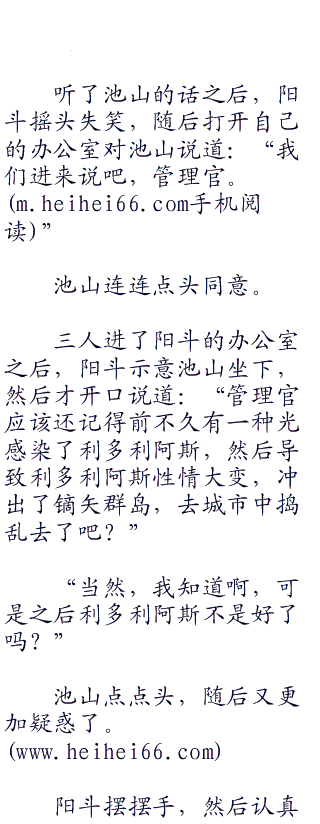 听了池山的话之后，阳
斗摇头失笑，随后打开自己
的办公室对池山说道：“我
们进来说吧，管理官。
(m.heihei66.com手机阅
读)”
池山连连点头同意。
三人进了阳斗的办公室
之后，阳斗示意池山坐下，
然后才开口说道：“管理官
应该还记得前不久有一种光
感染了利多利阿斯，然后导
致利多利阿斯性情大变，冲
出了镝矢群岛，去城市中捣
乱去了吧？”
“当然，我知道啊，可
是之后利多利阿斯不是好了
吗？”
池山点点头，随后又更
加疑惑了。
(www.heihei66.com)
阳斗摆摆手，然后认真